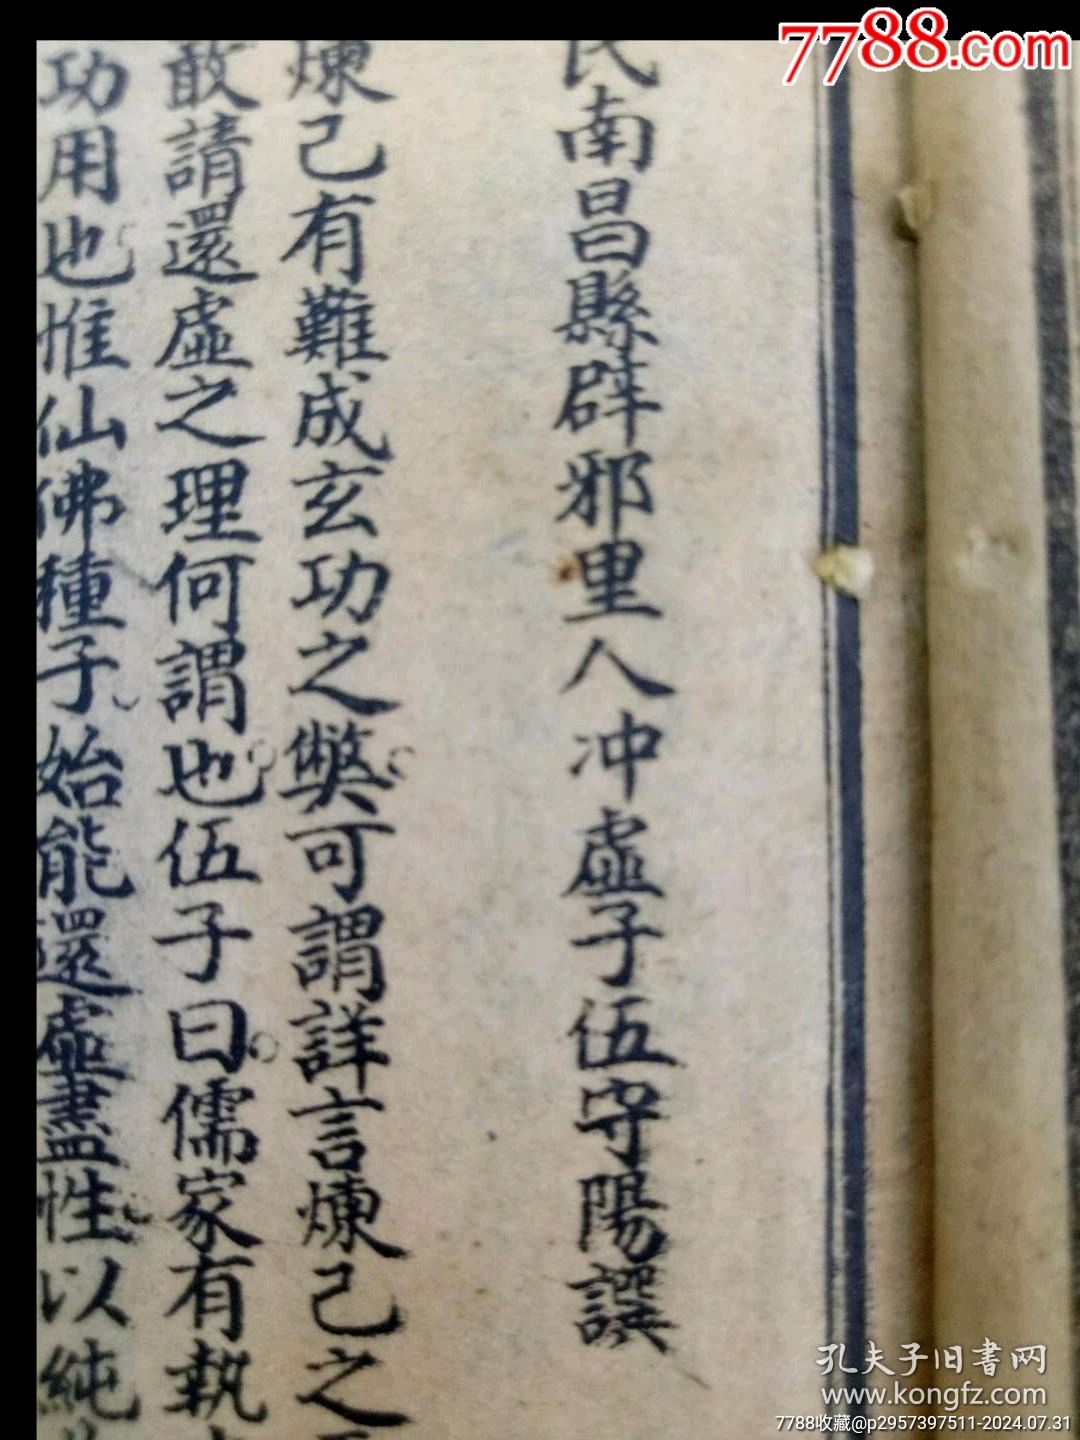 7788.com
民南昌縣辟邪里人冲虛子伍守陽譔
煉己有難成玄功之獘可謂詳言煉己之
敢請還虛之理何謂也伍子曰儒家有執
功用也惟仙佛種子始能還虛盡性以純
孔夫子旧書网
www.kongfz.com
7788收藏@p2957397511-2024.07.31